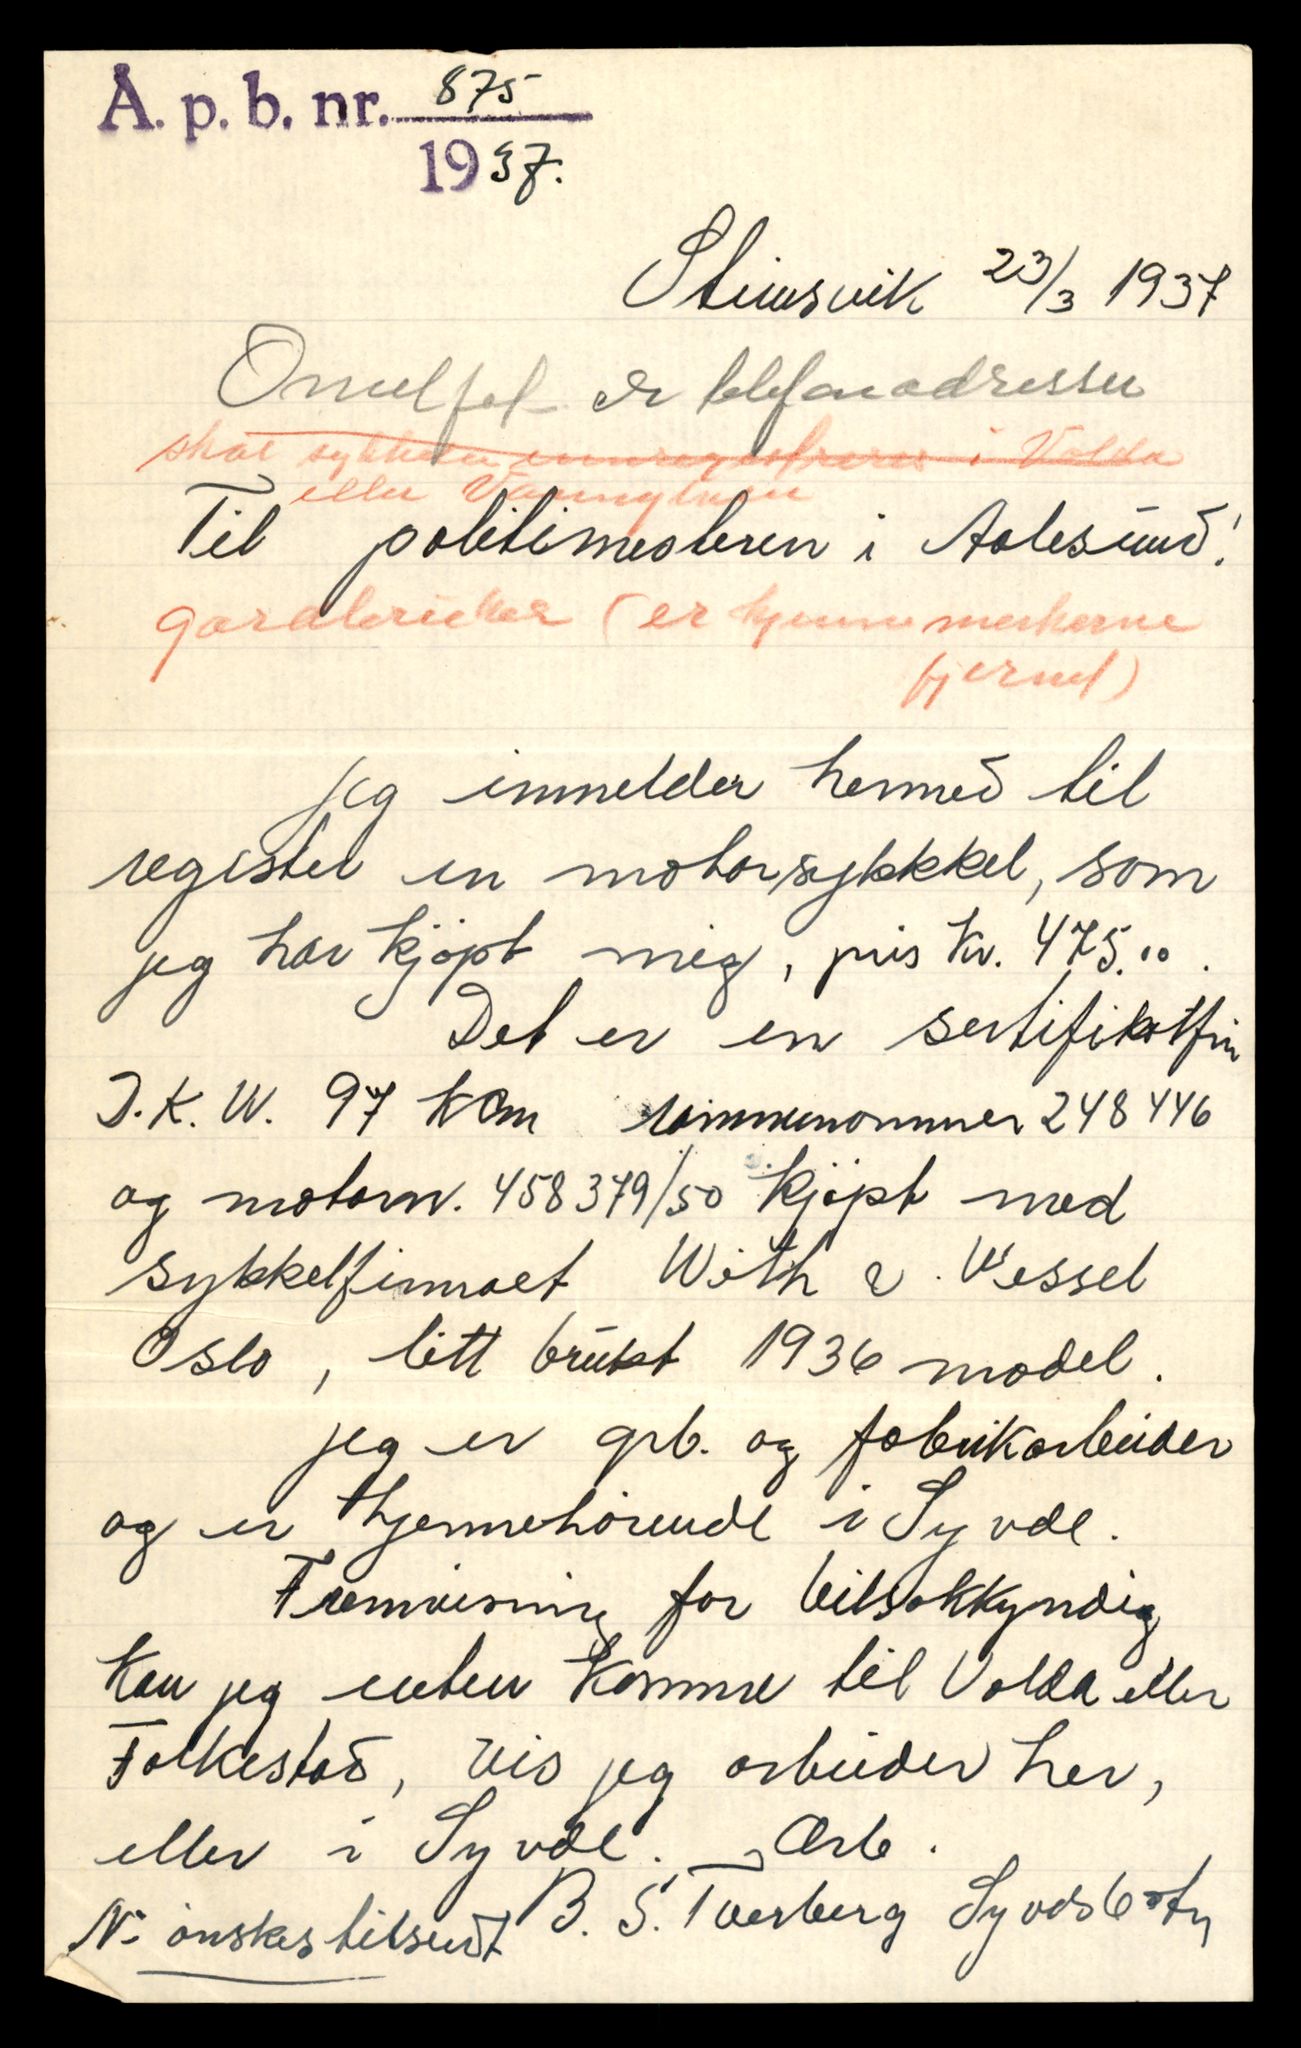 Å. p. b. nr. 875
1937.
Stiwsvik 23/3 1937
er telefonadressen
skal sykkelen innregistreres i Volda
eller
Til politimesteren i Aalesund!
(er kjennemerkerne
fjernet)
jeg inmelder hermed til
register en motorsykkkel, som
jeg har kjøpt mig, pris kr. 475.00.
Det er en sertifikatfri
D.K.W. 97 kcm rammenommer 248446
og motornr. 458379/50 kjøpt med
sykkelfirmaet With & Wessel
Oslo, litt brukt 1936 model.
jeg er grb. og fabrikarbeider
og er hjemmehörende i Syvde.
Fremvisning for bilsakkyndig
kan jeg enten komme til Volda eller
Folkestad, vis jeg arbeider her,
eller i Syvde. Ærb.
B. S. Tverberg Syvdsbotn
Nr önskes tilsendt